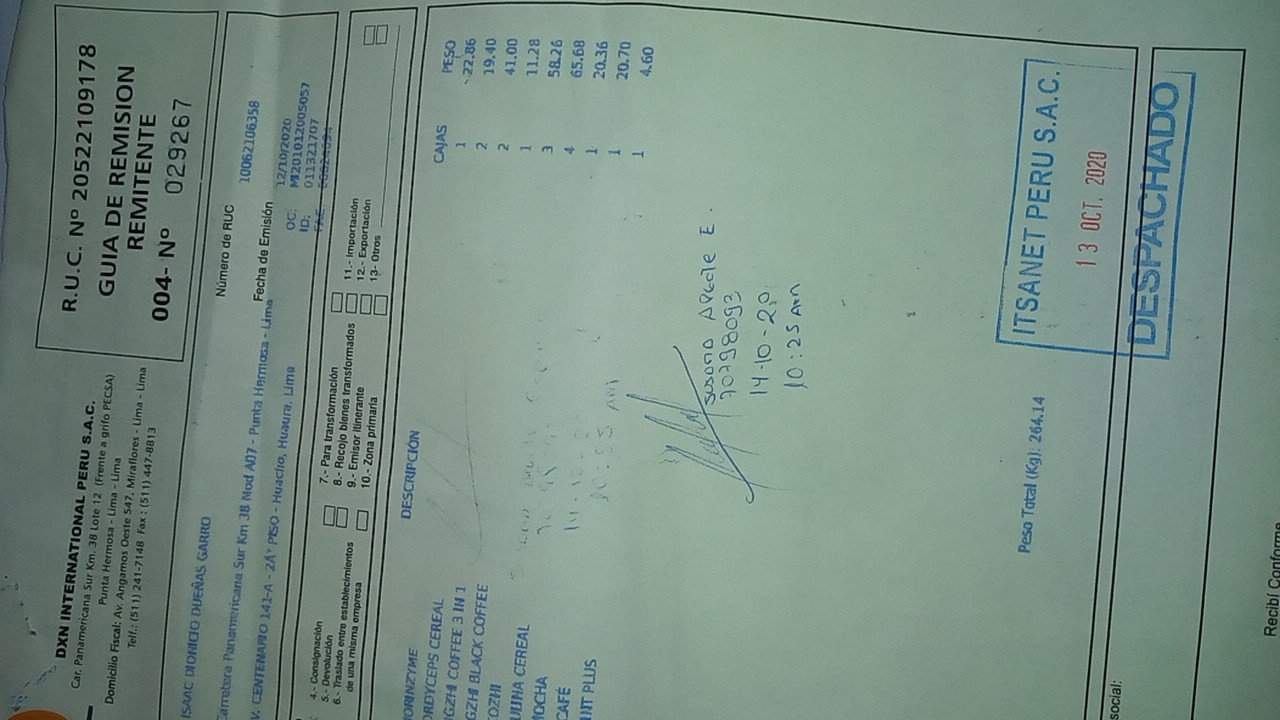 DXN INTERNATIONAL PERU S.A.C.
Car. Panamericana Sur Km. 38 Lote 12 (Frente a grifo PECSA)
Punta Hermosa - Lima - Lima
Domicilio Fiscal: Av. Angamos Oeste 547, Miraflores - Lima - Lima
Telf.: (511) 241-7148 Fax : (511) 447-8813
R.U.C. Nº 20522109178
GUIA DE REMISION
REMITENTE
004- Nº 029267
ISAAC DIONICIO DUEÑAS GARRO
Número de RUC 10062106358
arretera Panamericana Sur Km 38 Mod A07 - Punta Hermosa - Lima
Fecha de Emisión 12/10/2020
V. CENTENARIO 141-A - 2Â° PISO - Huacho, Huaura, Lima
OC: MI201012005057
ID: 011321707
4.- Consignación
5.- Devolución
6.- Traslado entre establecimientos
de una misma empresa
7.- Para transformación
8.- Recojo bienes transformados
9.- Emisor itinerante
10.- Zona primaria
11.- Importación
12.- Exportación
13- Otros
DESCRIPCIÓN CAJAS PESO
ORINZYME 1 22.86
ORDYCEPS CEREAL 2 19.40
GZHI COFFEE 3 IN 1 2 41.00
GZHI BLACK COFFEE 1 11.28
OZHI 3 58.26
ULINA CEREAL 4 65.68
MOCHA 1 20.36
CAFÉ 1 20.70
INT PLUS 1 4.60
70798093
14-10-20
10:25 Am
Peso Total (Kg). 264.14
ITSANET PERU S.A.C.
13 OCT. 2020
DESPACHADO
social:
Recibí Conforme